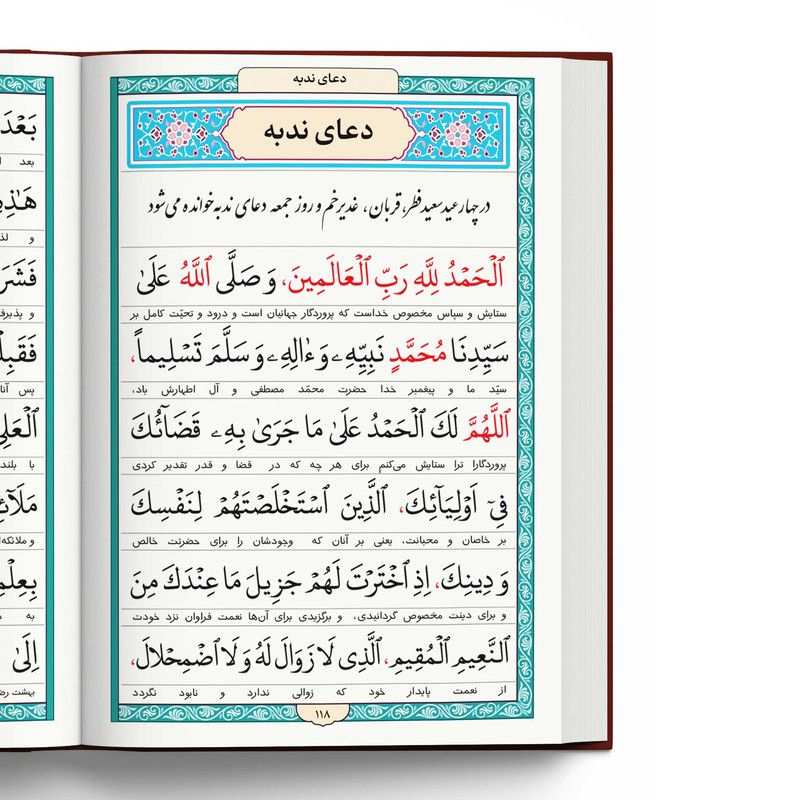 دعای ندبه
دعای ندبه
در چهار عید سعید فطر، قربان، غدیر خم و روز جمعه دعای ندبه خوانده می‌شود
اَلْحَمْدُ لِلّٰهِ رَبِّ الْعَالَمِينَ، وَ صَلَّى اللّٰهُ عَلَىٰ
ستایش و سپاس مخصوص خداست که پروردگار جهانیان است و درود و تحیّت کامل بر
سَيِّدِنَا مُحَمَّدٍ نَبِيِّهِ وَءٰالِهِ وَ سَلَّمَ تَسْلِيماً،
سیّد ما و پیغمبر خدا حضرت محمّد مصطفی و آل اطهارش باد،
اَللّٰهُمَّ لَكَ الْحَمْدُ عَلَىٰ مَا جَرَىٰ بِهِ قَضَائُكَ
پروردگارا ترا ستایش می‌کنم برای هر چه که در قضا و قدر تقدیر کردی
فِىٓ اَوْلِيَآئِكَ، الَّذِينَ اسْتَخْلَصْتَهُمْ لِنَفْسِكَ
بر خاصان و محبانت، یعنی بر آنان که وجودشان را برای حضرتت خالص
وَ دِينِكَ، اِذِ اخْتَرْتَ لَهُمْ جَزِيلَ مَا عِنْدَكَ مِنَ
و برای دینت مخصوص گردانیدی، و برگزیدی برای آن‌ها نعمت فراوان نزد خودت
النَّعِيمِ الْمُقِيمِ، الَّذِى لَا زَوَالَ لَهُ وَ لَا اضْمِحْلَالَ،
از نعمت پایدار خود که زوالی ندارد و نابود نگردد
۱۱۸
بَعْدَ
بعد
هٰذِهِ
و
فَشَرَ
و
فَقَبِلْ
پس
الْعَلِىَّ
با
مَلَآئِ
و ملائکه
بِعِلْمِ
به
اِلَىٰ
بهشت